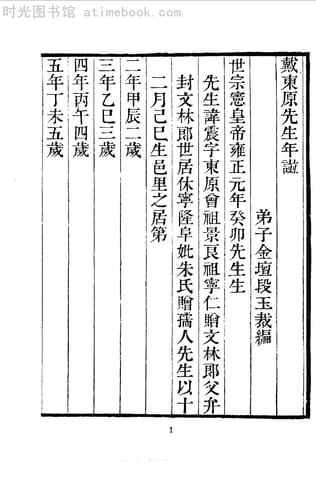 时光图书馆 — atimebook.com
戴東原先生年譜
弟子金壇段玉裁編
世宗憲皇帝雍正元年癸卯先生生
先生諱震字東原曾祖景良祖寧仁贈文林郎父弁
封文林郎世居休寧隆阜妣朱氏贈孺人先生以十
二月己巳生邑里之居第
二年甲辰二歲
三年乙巳三歲
四年丙午四歲
五年丁未五歲
1